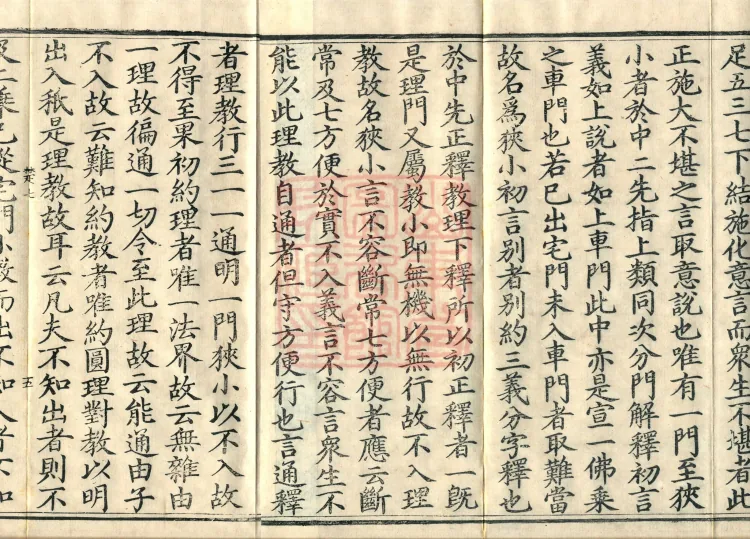 足五三七下結施化意言而衆生不堪者此
正施大不堪之言取意說也唯有一門至狹
小者於中二先指上類同次分門解釋初言
義如上說者如上車門此中亦是宣一佛乘
之車門也若已出宅門未入車門者取難當
故名爲狹小初言別者別約三義分字釋也
於中先正釋教理下釋所以初正釋者一旣
是理門又屬教小卽無機以無行故不入理
教故名狹小言不容斷常七方便者應云斷
常及七方便於實不入義言不容言衆生不
能以此理教自通者但守方便行也言通釋
者理教行三一一通明一門狹小以不入故
不得至果初約理者唯一法界故云無雜由
一理故徧通一切今至此理故云能通由子
不入故云難知約教者唯約圓理對教以明
出入秖是理教故耳云凡夫不知出者則不
七
五
二乘已從宅門小教而出不知入者不知